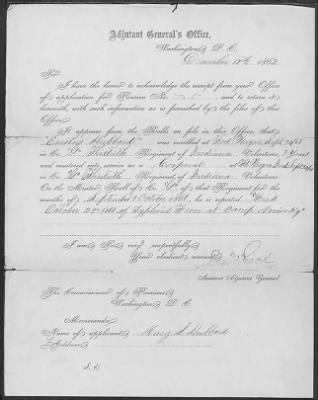 Adjutant General's Office,
Washington, D. C.
December 18th, 1862
Sir:
I have the honor to acknowledge the receipt from your Office
of application for Pension No. and to return it
herewith, with such information as is furnished by the files of this
Office.
It appears from the Rolls on file in this Office, that
was enrolled at Fort Wayne Sept 24/61
in Co. Regiment of Indiana Volunteers, 3 Years
and mustered into service as Corporal at Ft Wayne
in Co. Regiment of Indiana Volunteers.
On the Muster Roll of Co. of that Regiment for the
months of September & October, 1861, he is reported, "Died
October of Typhoid Fever at Camp Ky"
I am, Sir, very respectfully,
Your obedient servant,
Assistant Adjutant General.
The Commissioner of Pensions
Washington, D. C.
Memoranda.
Name of applicant, Mary
Address,